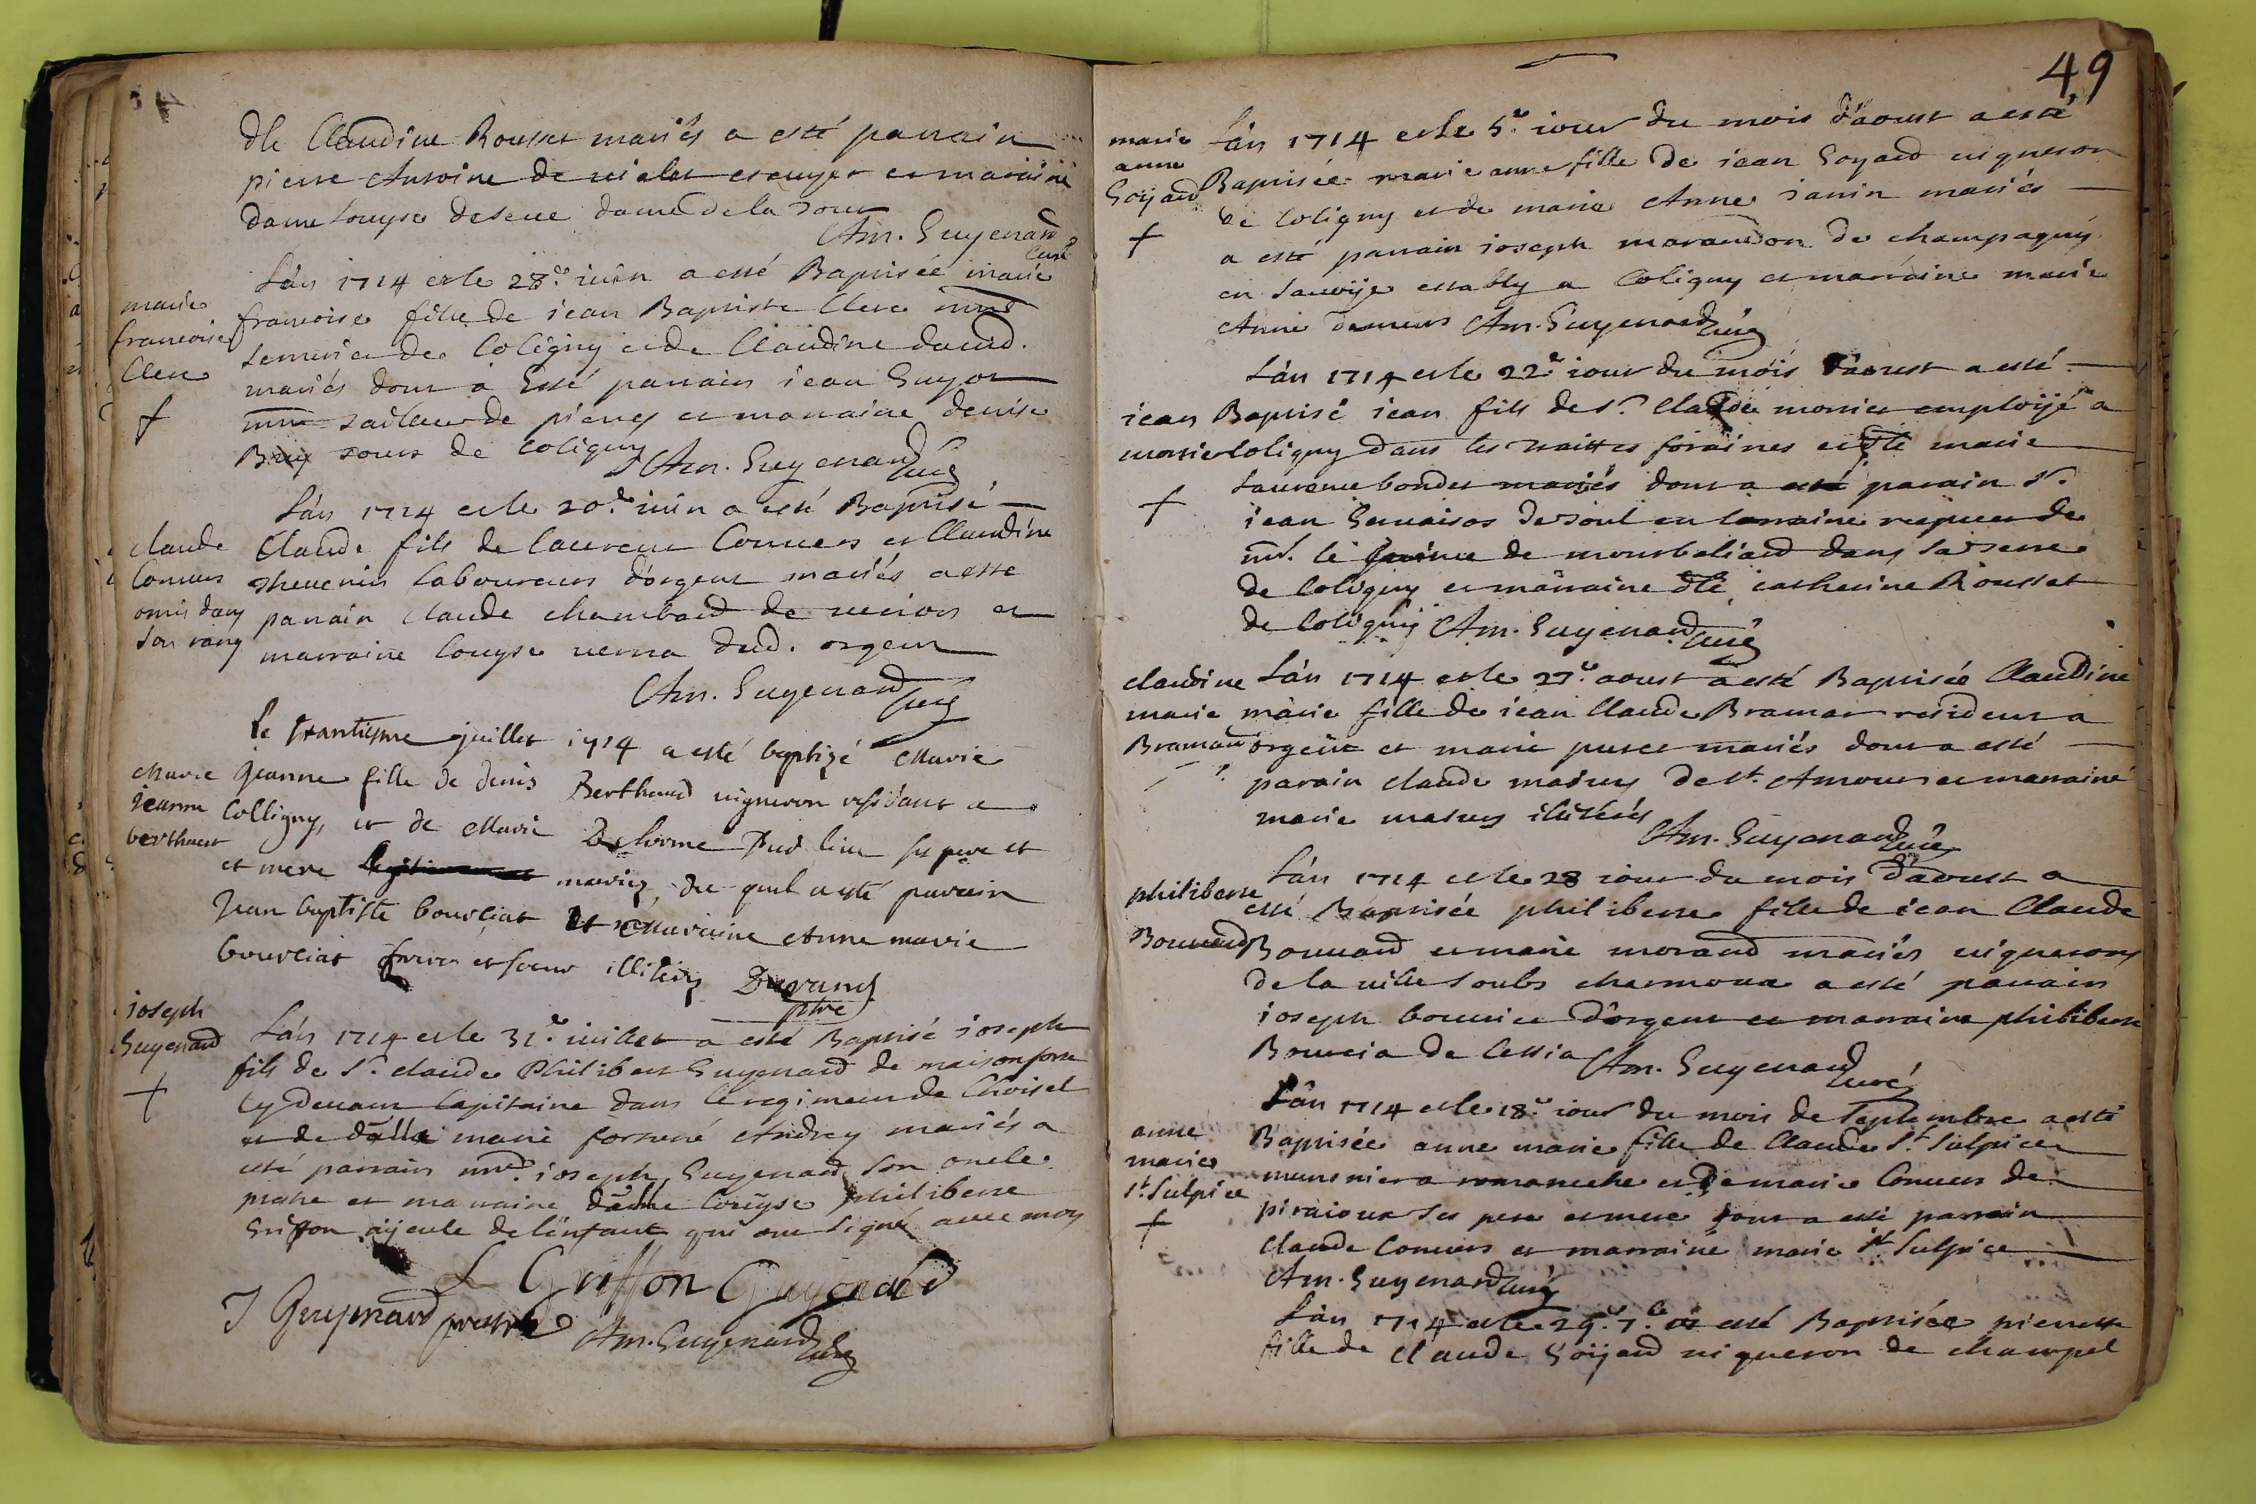 dlle Claudine Rousset mariés a esté parrain
pierre Antoine de vialet escuyer et marraine
dame Louyse deseve dame de la Tour
Am. Guyenard
curé
marie
francoise
Clerc
L'an 1714 et le 28e. iuin a esté Baptisée marie
francoise fille de iean Baptiste Clerc
serrurier de Coligny et de Claudine david.
mariés dont a Esté parrain iean Guyot
tailleur de pierres et marraine denise
Buy tous de Coligny
Am. Guyenard curé
claude
Convers
omis dans
son rang
L'an 1714 et le 20e. iuin a esté Baptisé
Claude fils de laurent Convers et Claudine
thevenin laboureurs d'orgent mariés a esté
parrain claude chambard de verjon et
marraine louyse verna dud. orgent
Am. Guyenard curé
marie
jeanne
berthaut
Le trantiesme juillet 1714 a esté baptizé Marie
Jeanne fille de denis Berthaud vigneron residant a
Colligny, et de Marie Delorme dud lieu ses pere et
et mere mariez, du quel a esté parrain
Jean baptiste bourciat Et Maraine Anne marie
bourciat frere et soeur illiterez Durand
ptre
ioseph
Guyenard
L'an 1714 et le 31e. iuillet a esté Baptisé ioseph
fils de Sr. claude Philibert Guyenard de maisonforte
Cy devant Capitaine dans le regiment de Choisel
et de dalle marie fortuné Andrey mariés a
esté parrain mre. ioseph Guyenard son oncle
pretre et marraine dame louyse philiberte
Griffon ayeule de l'enfant qui ont signé avec moy
L Griffon Guyenard
J Guyenard prestre
Am. Guyenard curé
49
marie
anne
Goyard
L'an 1714 et le 5e. iour du mois d'aoust a esté
Baptisée marie anne fille de iean Goyard vigneron
de Coligny et de marie Anne ianin mariés
a esté parrain ioseph marandon de champagny
en Savoije estably a Coligny et marraine marie
Anne Am. Guyenard curé
iean
monier
L'an 1714 et le 22e iour du mois d'aoust a esté
Baptisé iean fils de Sr. Claude monier employé a
Coligny dans les traittes foraines et de marie
Laurence bondet mariés dont a esté parain Sr.
iean Gervaisos de toul en lorraine receveur de
mr. le prince de montbeliard dans sa terre
de Coligny et maraine dlle. catherine Rousset
de Coligny Am. Guyenard curé
claudine
marie
Bramard
L'an 1714 et le 27e. aoust a esté Baptisée Claudine
marie fille de iean Claude Bramar resident a
orgent et marie puret mariés dont a esté
parain claude mathy de St. Amour et marraine
marie mathy iliterés
Am. Guyenard curé
philiberte
Bouvard
L'an 1714 et le 28 iour du mois d'aoust a
esté Baptisée philiberte fille de iean Claude
Bouvard et marie morand mariés vignerons
de la ville soubs charmoux a esté parrain
ioseph bouvier d'orgent et marraine philiberte
Bourcia de Cessia Am. Guyenard curé
anne
marie
St. Sulpice
L'an 1714 et le 18e. iour du mois de septembre a esté
Baptisée anne marie fille de Claude St. Sulpice
munsnier a romaneche et de marie Convers de
piraioux ses pere et mere dont a esté parrain
Claude Convers et marraine marie St Sulpice
Am. Guyenard curé
L'an 1714 et le 29e. 7bre a esté Baptisée pierrette
fille de claude Goijard vigneron de champel